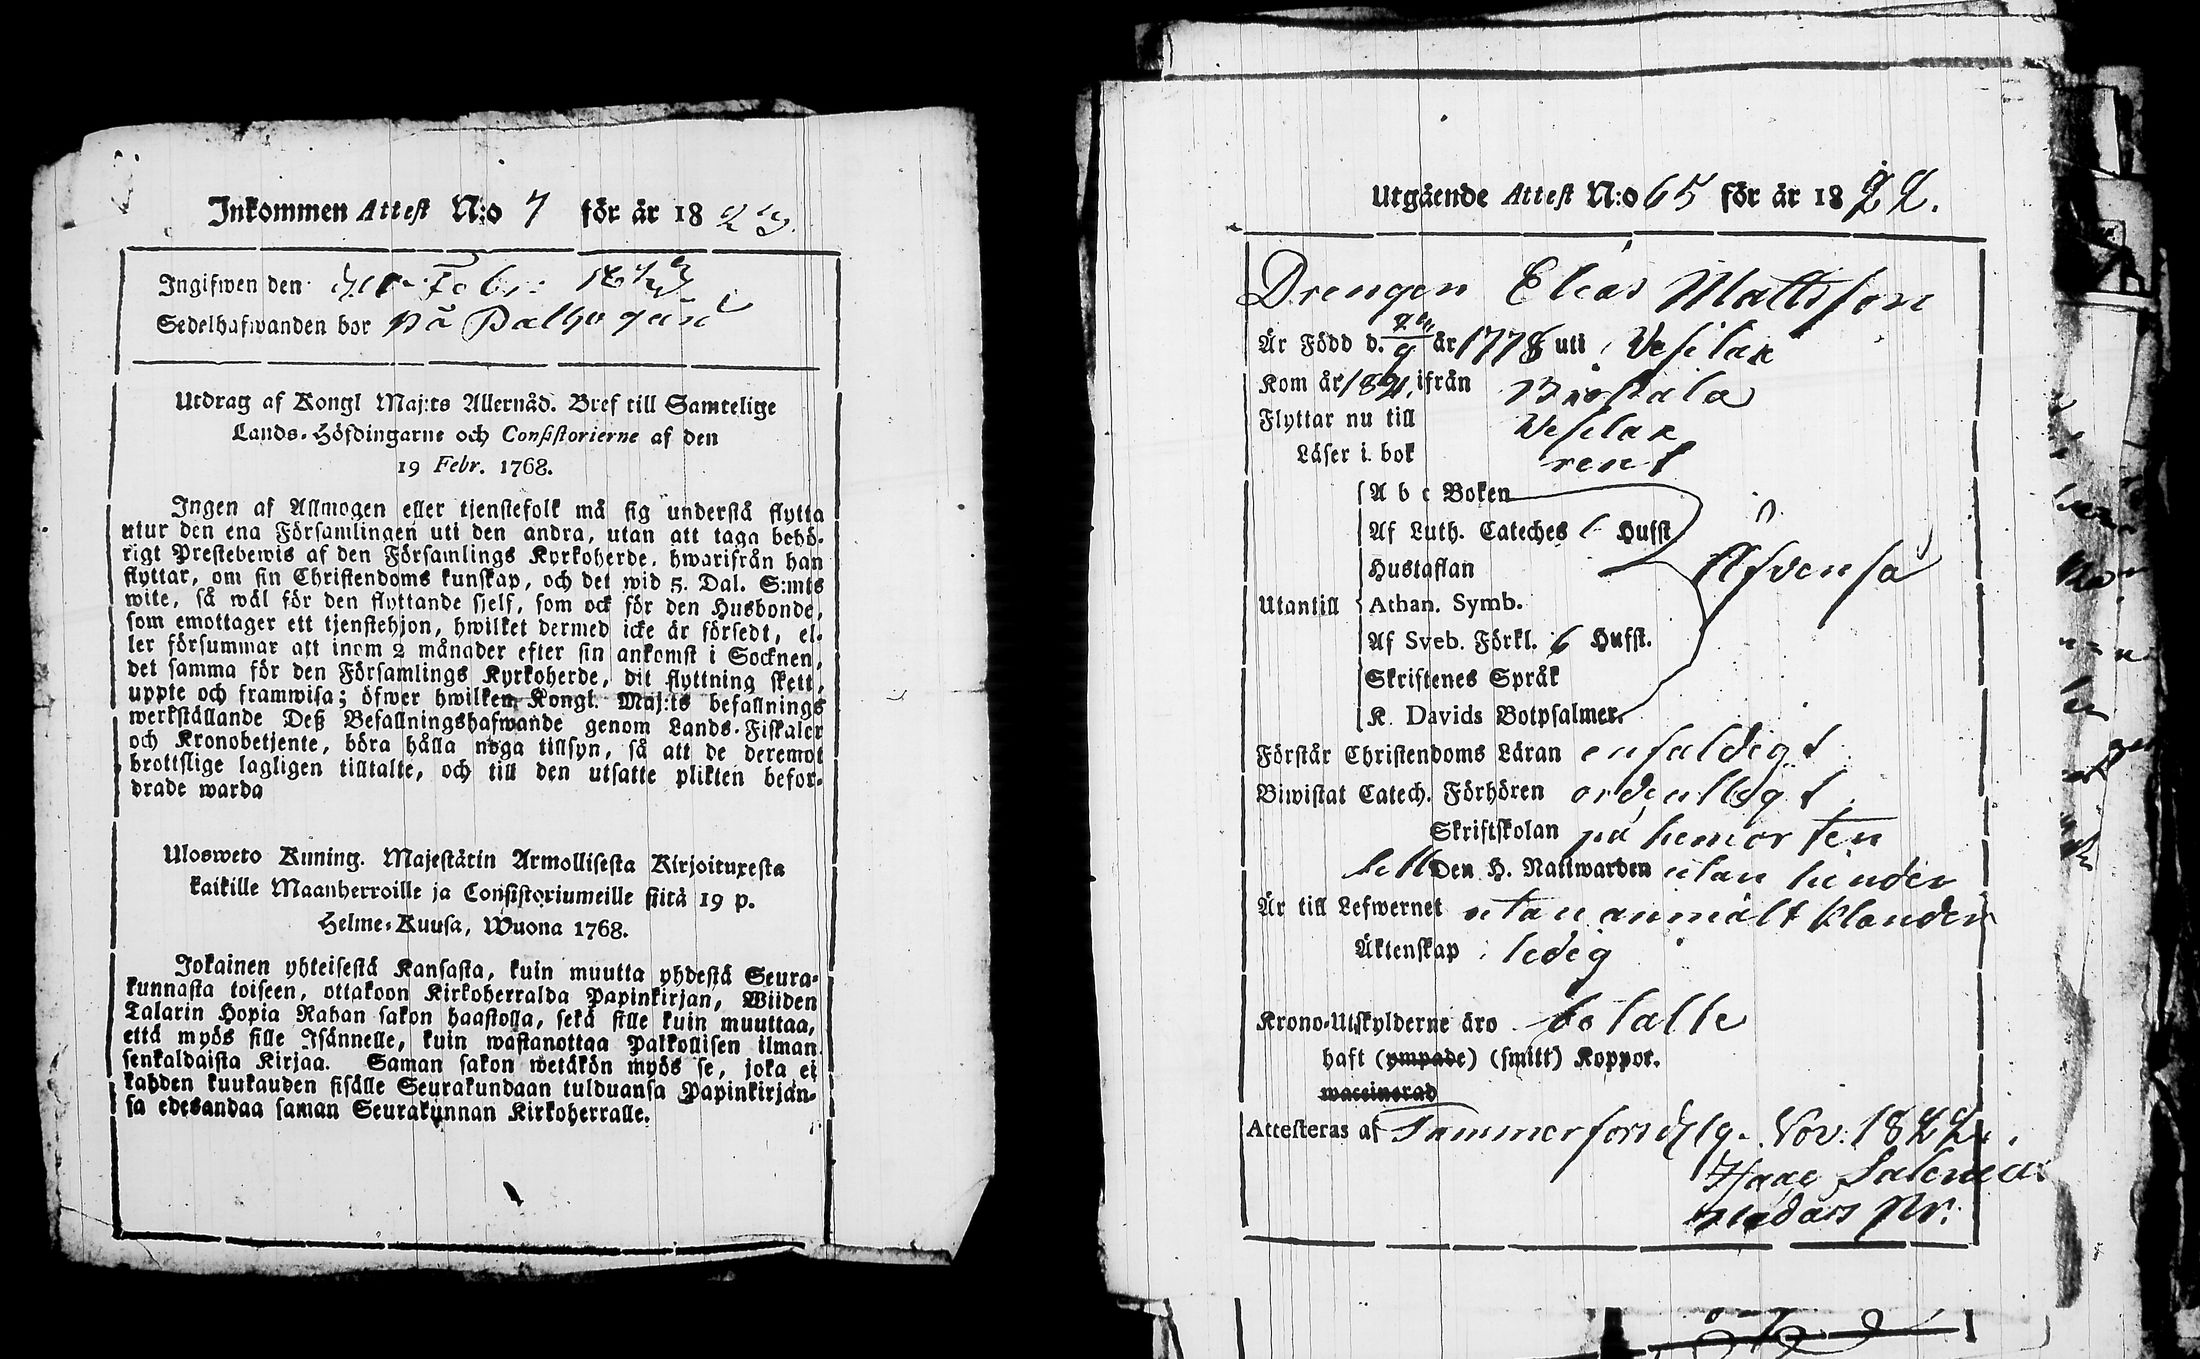 Inkommen Attest N:o 7 för år 1823.
Ingifwen den 2 Febr: 1823
Sedelhafwanden bor på
Utdrag af Kongl Maj:ts Allernåd. Bref till Samtelige
Lands-Höfdingarne och Consistorierne af den
19 Febr. 1768.
Ingen af Allmogen eller tjenstefolk må sig understå flytta
utur den ena Församlingen uti den andra, utan att taga behö-
rigt Prestebewis af den Församlings Kyrkoherde, hwarifrån han
flyttar, om sin Christendoms kunskap, och det wid 5. Dal. S:mts
wite, så wäl för den flyttande sjelf, som ock för den Husbonde,
som emottager ett tjenstehjon, hwilket dermed icke är försedt, el-
ler försummar att inom 2 månader efter sin ankomst i Socknen,
det samma för den Församlings Kyrkoherde, dit flyttning skett,
uppte och framwisa; öfwer hwilken Kongl. Maj:ts befallnings
werkställande Deß Befallningshafwande genom Lands-Fiskaler
och Kronobetjente, böra hålla noga tillsyn, så att de deremot
brottslige lagligen tilltalte, och till den utsatte plikten befor-
drade warda
Ulosweto Kuning. Majestätin Armollisesta Kirjoituxesta
kaikille Maanherroille ja Consistoriumeille siitä 19 p.
Helme-Kuusa, Wuona 1768.
Jokainen yhteisestä Kansasta, kuin muutta yhdestä Seura-
kunnasta toiseen, ottakoon Kirkoherralda Papinkirjan, Wiiden
Talarin Hopia Rahan sakon haastolla, sekä sille kuin muuttaa,
että myös sille Isännelle, kuin wastanottaa Palkollisen ilman
senkaldaista Kirjaa. Saman sakon wetäkön myös se, joka ei
kahden kuukauden sisälle Seurakundaan tulduansa Papinkirjan-
sa edesandaa saman Seurakunnan Kirkoherralle.
Utgående Attest N:o 65 för år 1822.
Drengen Elias Mattsson
Är Född d. 7/9 år 1778 uti Vesilax
Kom år 1821 ifrån Birkala
Flyttar nu till Vesilax
Läser i bok rent
A b c Boken
Af Luth. Cateches Hufst
Hustaflan
Utantill Athan. Symb.
Af Sveb. Förkl. 6 Hufst.
Skriftenes Språk
K. Davids Botpsalmer.
Förstår Christendoms Läran enfaldigt
Biwistat Catech. Förhören ordentligt
Skriftskolan på hemorten
Den H. Nattwarden utan hinder
Är till Lefwernet utan anmält klander
Äktenskap ledig
Krono-Utskylderne äro betalte
haft (ympade) (smitt) Koppor.
waccinerad
Attesteras af Tammerfors d 19 Nov: 1822.
Isaac Salenius